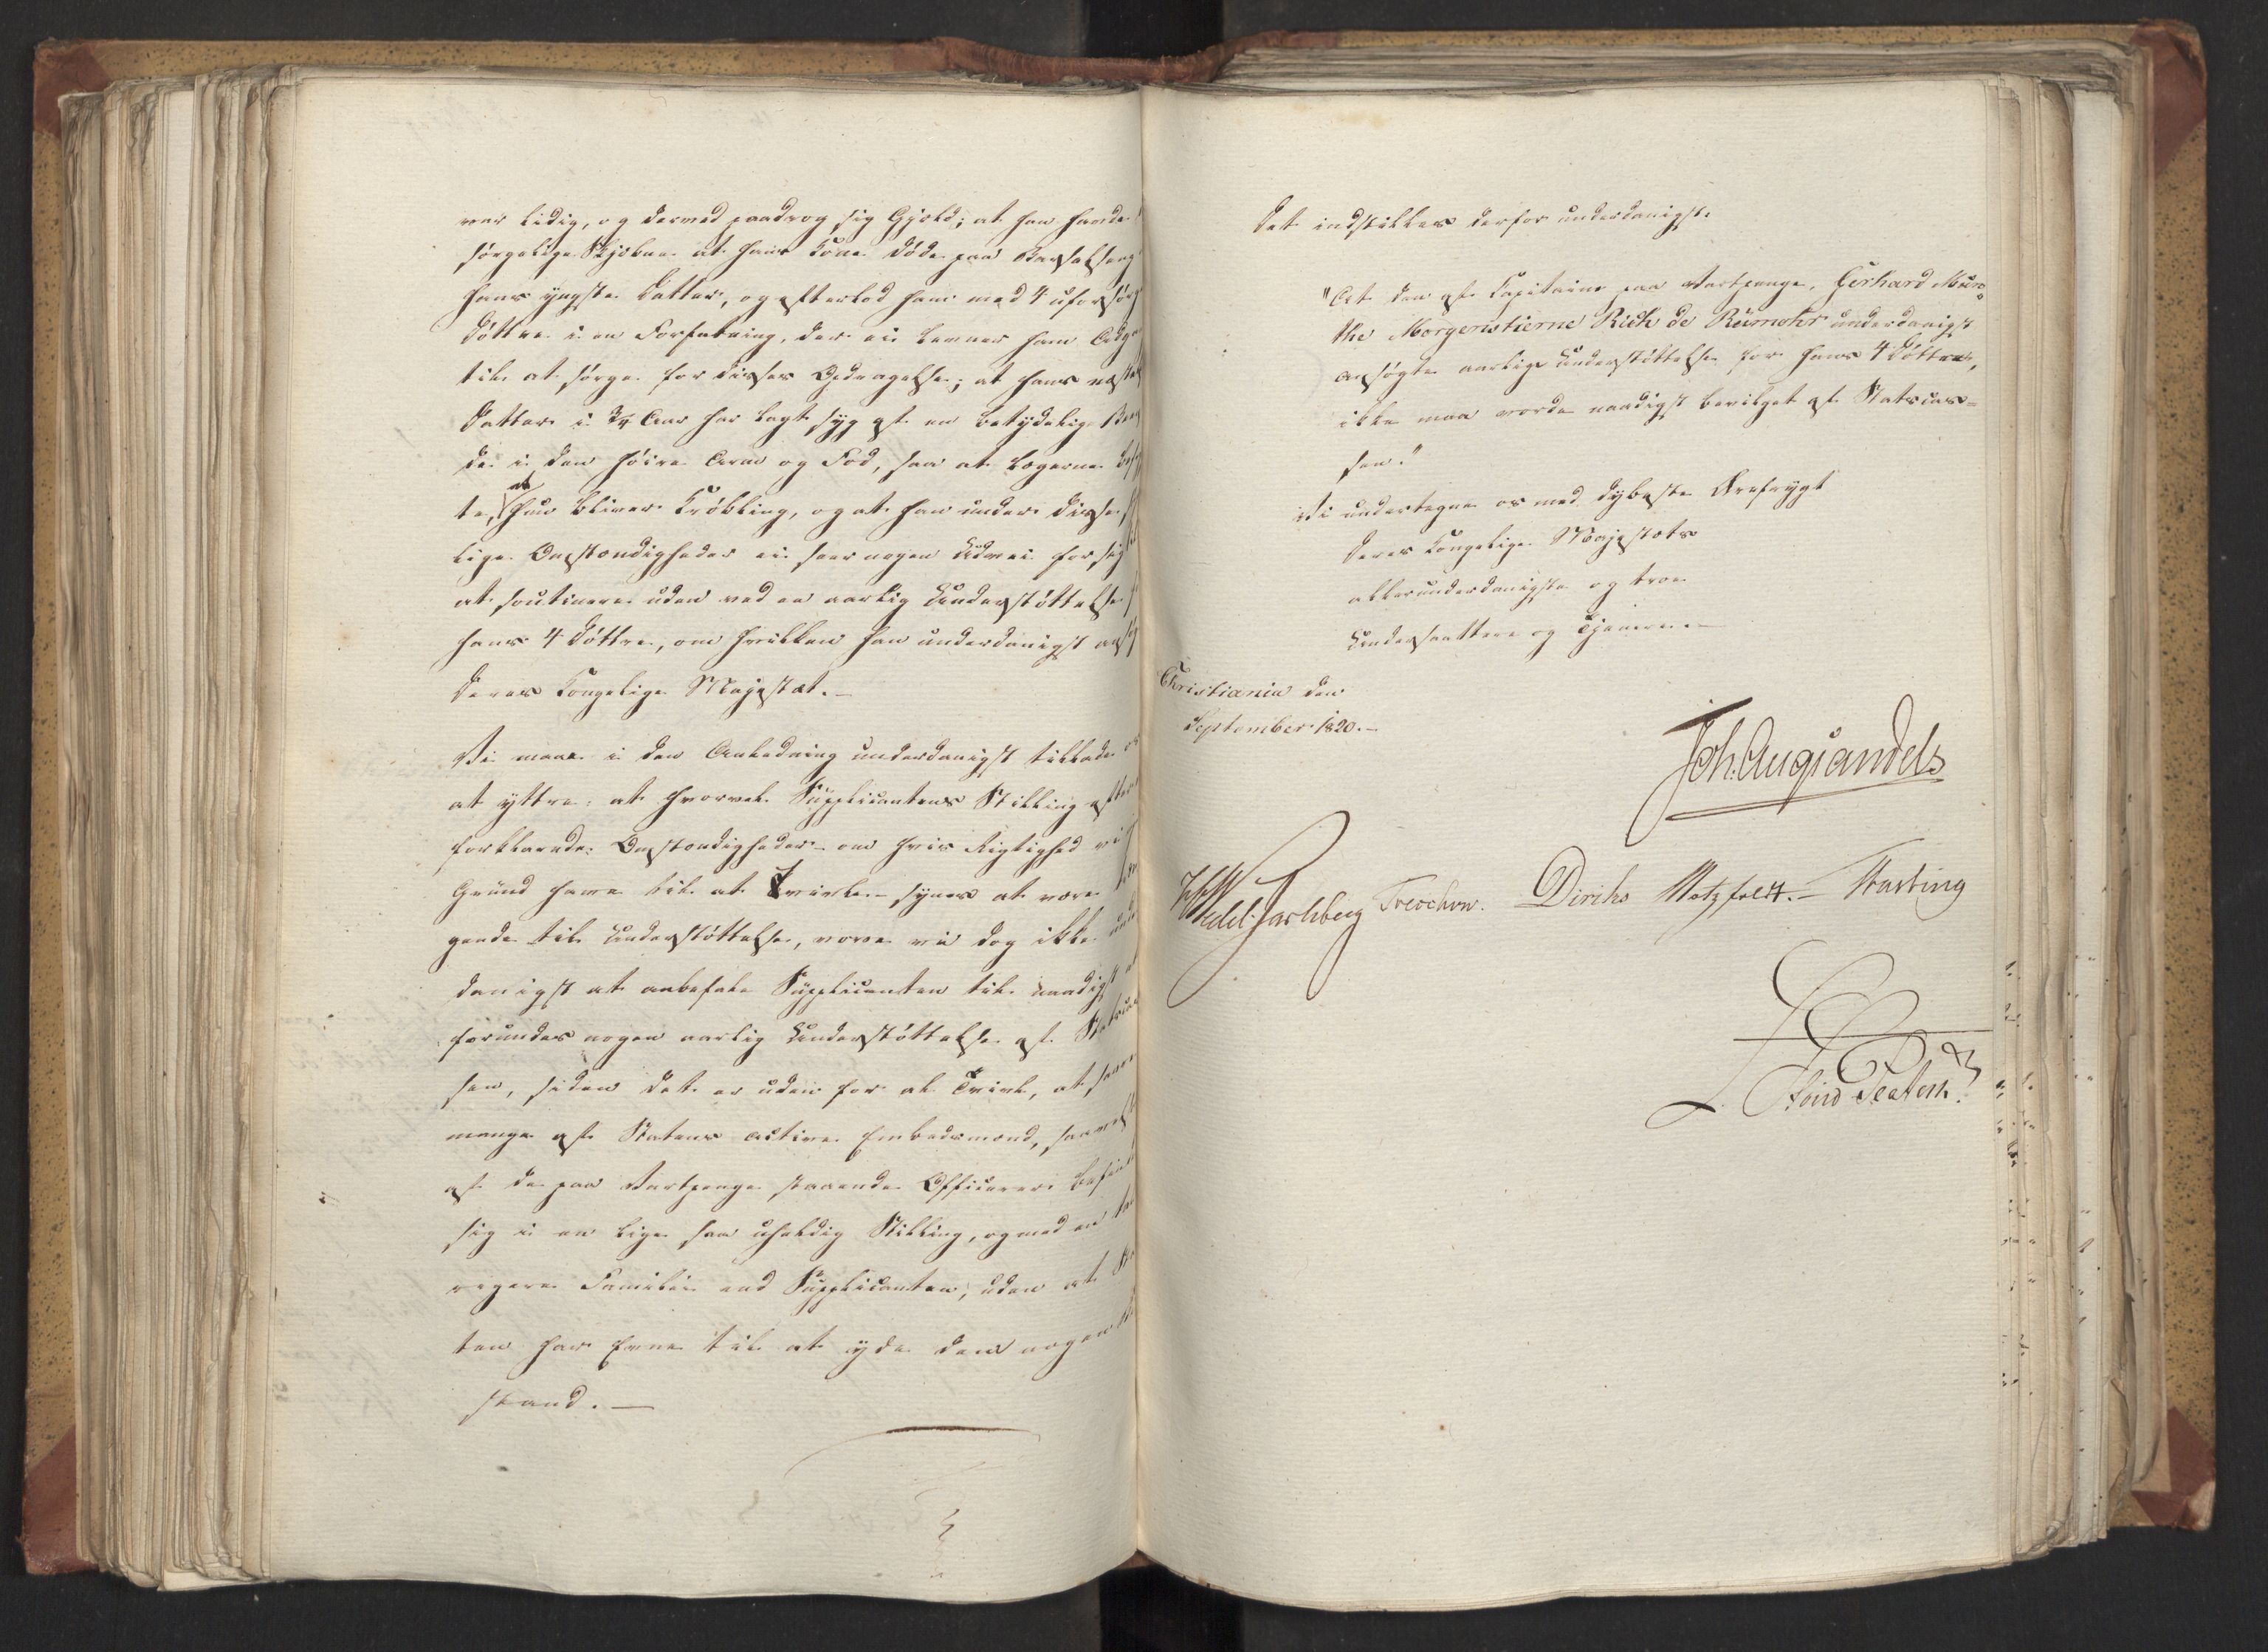 var ledig, og derved paadrog sig Gjæld; at han havde
sørgelige Skjebne at hans Kone døde paa Barselseng
hans yngste Datter, og efterlod ham med 4 uforsørg
Døttre i en Forfatning, der ei levner ham Adga
til at sørge for disses Opdragelse; at hans
Datter i ¾ Aar har lagt syg af en betydelig
de i den høire Arm og Fod, saa at Lægerne
te, at hun bliver Krøbling, og at han under disse
lige Omstændigheder ei seer nogen Udvei for sig
at soutinere uden ved en aarlig Understøttelse
hans 4 Døttre, om hvilken han underdanigst
Deres Kongelige Majestæt. –
Vi maae i den Anledning underdanigst tillade os
at yttre: at hvorvel Supplicantens Stilling efter
forklarede Omstændigheder – om hvis Rigtighed vi
Grund have til at Tvivle – synes at være
gende til Understøttelse, vove vi dog ikke und
danigst at anbefale Supplicanten til naadigst at
forundes nogen aarlig Understøttelse af Statscas
sen, siden det er uden for al Tvivl, at
mange af Statens active Embedsmænd, saavel
af de paa Vartpenge staaende Officerer befinde
sig i en lige saa uheldig Stilling, og med en
rigere Familie end Supplicanten, uden at Sta
ten har Evne til at yde dem nogen
stand. –
Det indstilles derfor underdanigst:
"At den af Capitaine paa Vartpenge, Gerhard Mun-
the Morgenstierne Rich de Rümohr underdanigst
ansøgte aarlige Understøttelse for hans 4 Døttre,
ikke maa vorde naadigst bevilget af Statscas=
sen."
Vi undertegne os med dybeste Ærefrygt
Deres Kongelige Majestæts
allerunderdanigste og troe
Undersaattere og Tjenere. –
Christiania den
September 1820. –
Joh. Aug. Sandels
Wedel Jarlsberg Treschow. Diriks Motzfeldt. – Fasting